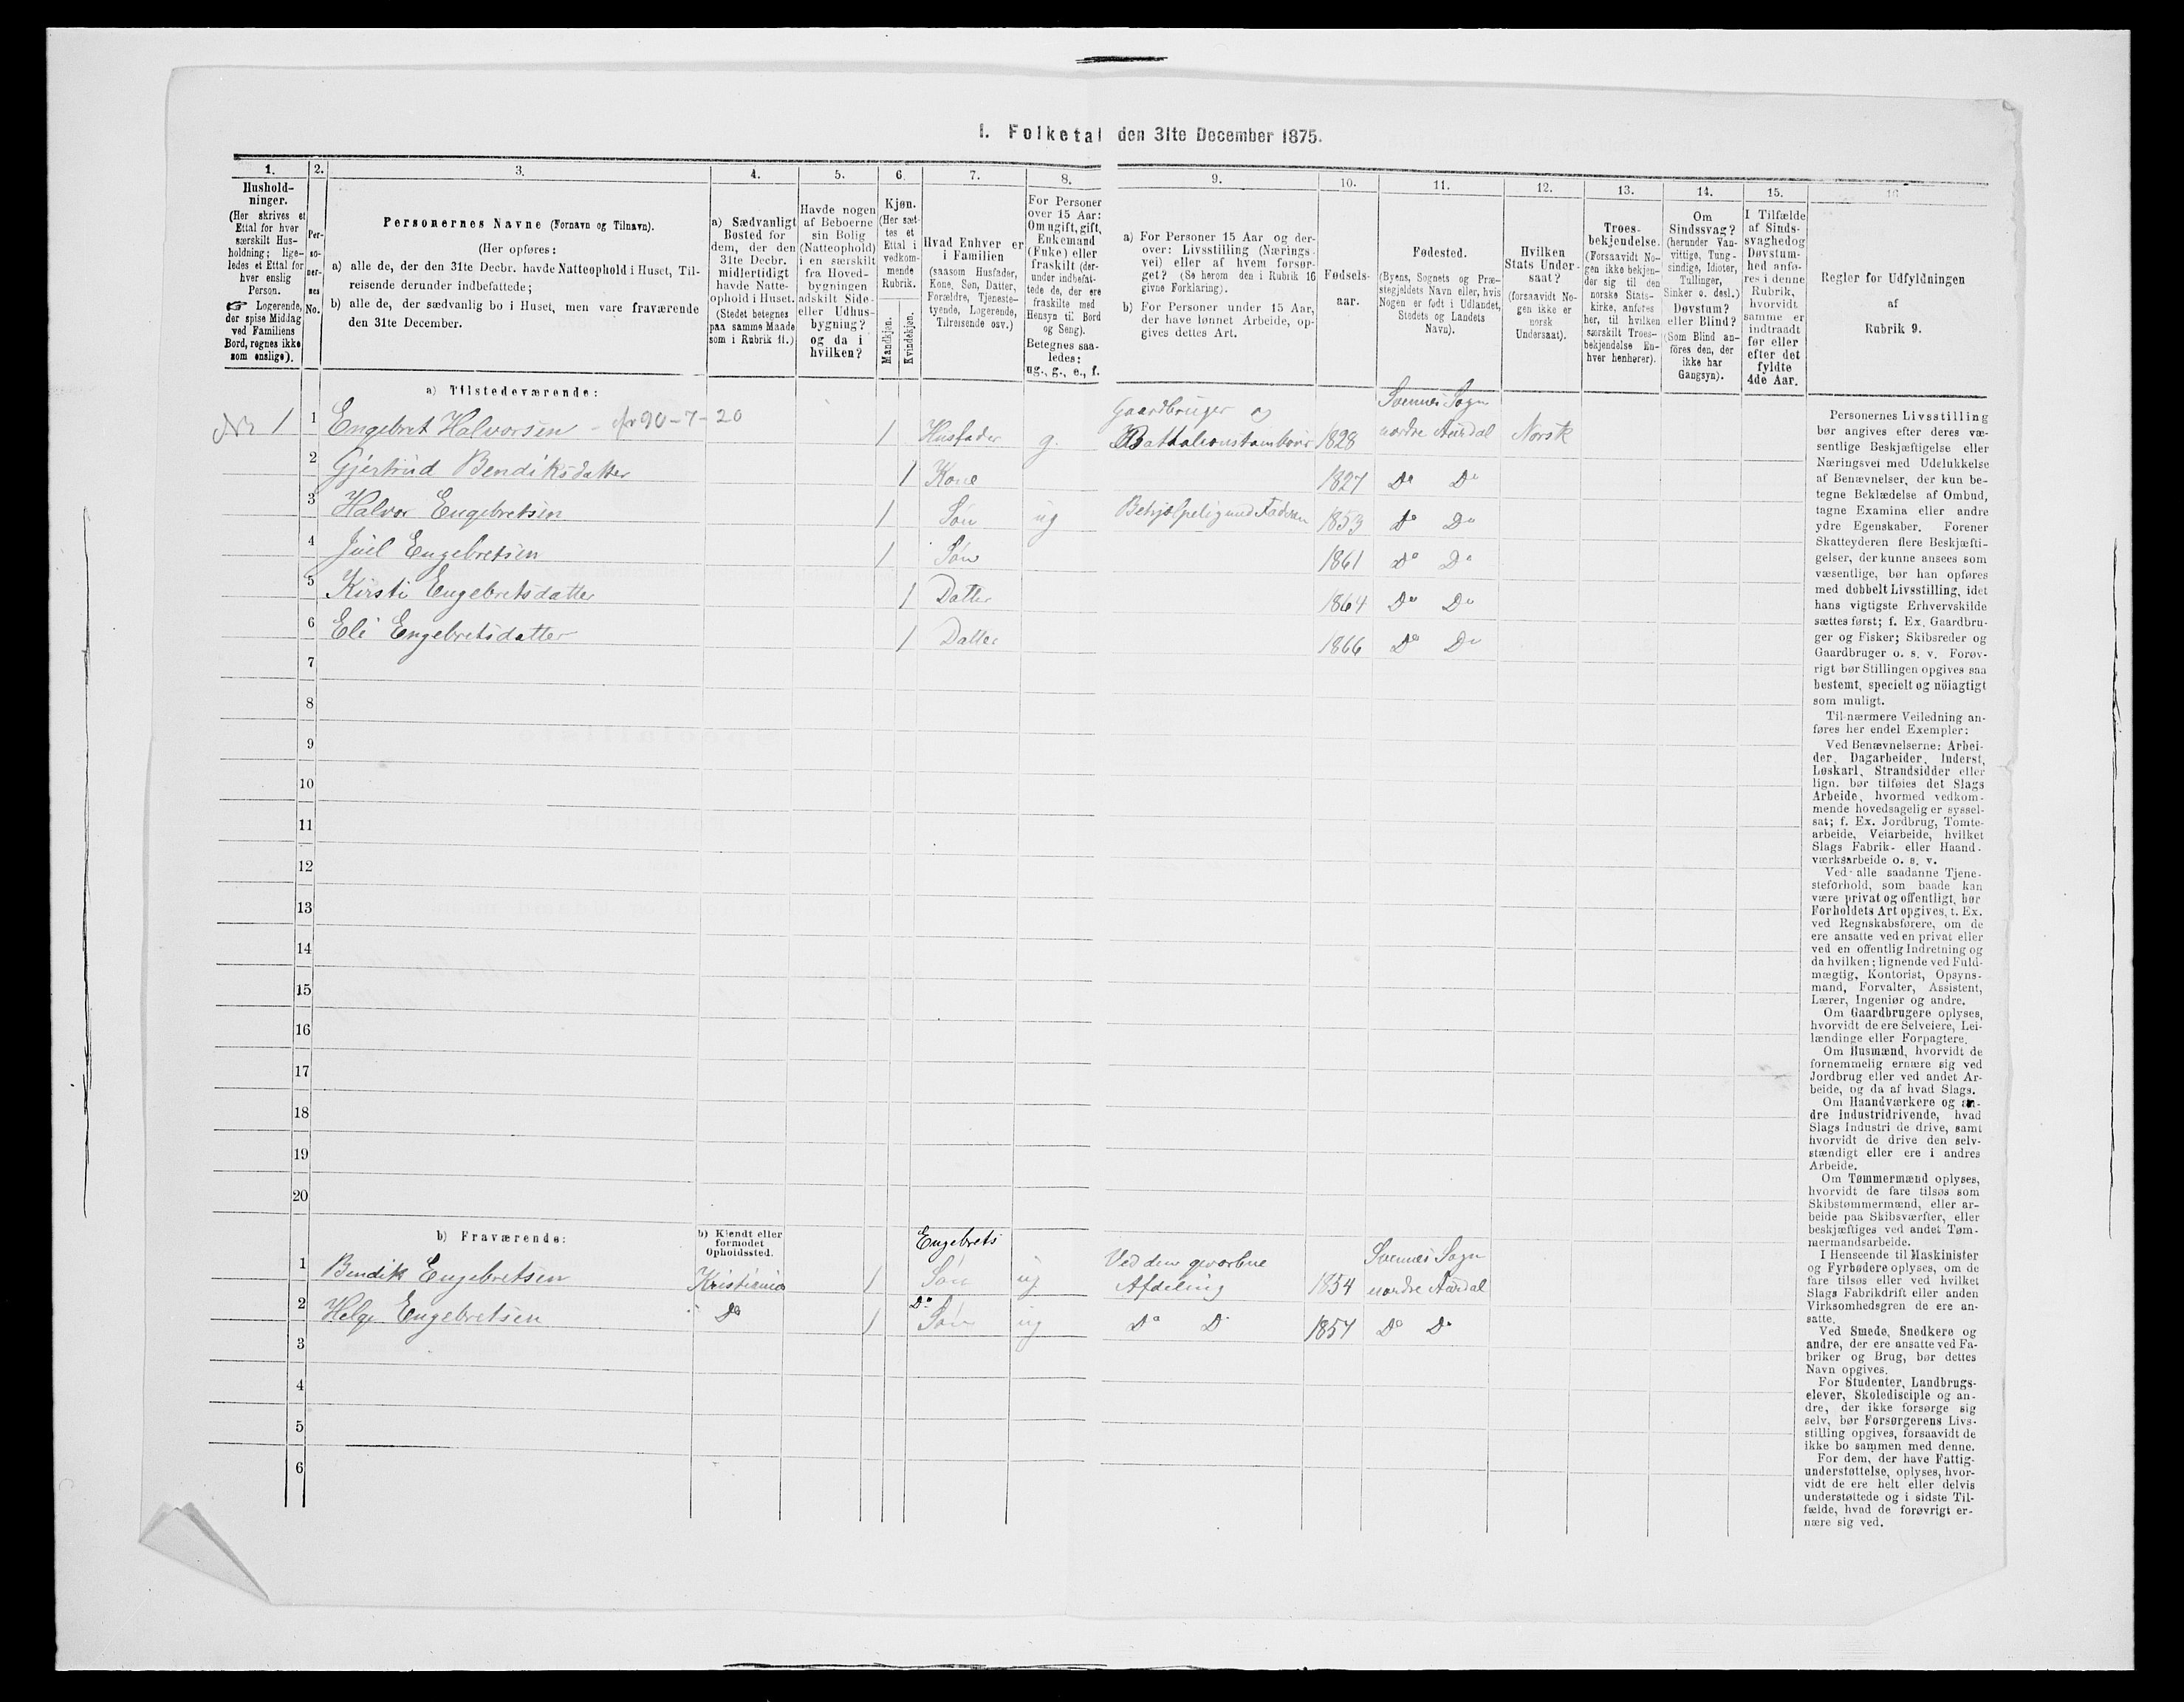 I. Folketal den 31te December 1875.
1. 2. 3. 4. 5. 6. 7. 8. 9. 10. 11. 12. 13. 14. 15. 16
Hushold-
ninger.
(Her skrives et
Ettal for hver
særskilt Hus-
holdning; lige-
ledes et Ettal for
hver enslig
Person.
☞ Logerende,
der spise Middag
ved Familiens
Bord, regnes ikke
som enslige).
Per-
so-
ner-
nes
No.
Personernes Navne (Fornavn og Tilnavn).
(Her opføres:
a) alle de, der den 31te Decbr. havde Natteophold i Huset, Til-
reisende derunder indbefattede;
b) alle de, der sædvanlig bo i Huset, men vare fraværende
den 31te December.
a) Sædvanligt
Bosted for
dem, der den
31te Decbr.
midlertidigt
havde Natte-
ophold i Huset.
(Stedet betegnes
paa samme Maade
som i Rubrik 11.)
Havde nogen
af Beboerne
sin Bolig
(Natteophold)
i en særskilt
fra Hoved-
bygningen
adskilt Side-
eller Udhus-
bygning?
og da i
hvilken?
Kjøn.
(Her sæt-
tes et
Ettal i
vedkom-
mende
Rubrik.
Mandkjøn.
Kvindekjøn.
Hvad Enhver er
i Familien
(saasom Husfader,
Kone, Søn, Datter,
Forældre, Tjeneste-
tyende, Logerende,
Tilreisende osv.)
For Personer
over 15 Aar:
Om ugift, gift,
Enkemand
(Enke) eller
fraskilt (der-
under indbefat-
tede de, der ere
fraskilte med
Hensyn til Bord
og Seng).
Betegnes saa-
ledes:
ug., g., e., f.
a) For Personer 15 Aar og der-
over: Livsstilling (Nærings-
vei) eller af hvem forsør-
get? (Se herom den i Rubrik 16
givne Forklaring).
b) For Personer under 15 Aar,
der have lønnet Arbeide, op-
gives dettes Art.
Fødsels-
aar.
Fødested.
(Byens, Sognets og Præ-
stegjeldets Navn eller, hvis
Nogen er født i Udlandet,
Stedets og Landets
Navn).
Hvilken
Stats Under-
saat?
(forsaavidt No-
gen ikke er
norsk
Undersaat).
Troes-
bekjendelse.
(Forsaavidt No-
gen ikke bekjen-
der sig til den
norske Stats-
kirke, anføres
her, til hvilken
særskilt Troes-
bekjendelse En-
hver henhører).
Om
Sindssvag?
(herunder Van-
vittige, Tung-
sindige, Idioter,
Tullinger,
Sinker o. desl.)
Døvstum?
eller Blind?
(Som Blind an-
føres den, der
ikke har
Gangsyn).
I Tilfælde
af Sinds-
svaghed og
Døvstum-
hed anfø-
res i denne
Rubrik,
hvorvidt
samme er
indtraadt
før eller
efter det
fyldte
4de Aar.
Regler for Udfyldningen
af
Rubrik 9.
a) Tilstedeværende:
Gaardbruger og
Svennes Sogn
1 Engebret Halvorsen 90-7-20 1 Husfader g. Battalionstambour 1828 nordre Aurdal Norsk
2 Gjertrud Bendiksdatter 1 Kone 1827 Do Do
3 Halvor Engebretsen 1 Søn ug 1853 Do Do
4 Juel Engebretsen 1 Søn 1861 Do Do
5 Kirsti Engebretsdatter 1 Datter 1864 Do Do
6 Eli Engebretsdatter 1 Datter 1866 Do Do
7
8
9
10
11
12
13
14
15
16
17
18
19
20
b) Fraværende:
b) Kjendt eller
formodet
Opholdssted.
Engebrets
Ved den gevorbne
Svennes Sogn
1 Bendik Engebretsen Kristiania 1 Søn ug Afdeling 1854 nordre Aurdal
2 Helge Engebretsen Do 1 Do Søn ug Do Do 1857 Do Do
3
4
5
6
Personernes Livsstilling
bør angives efter deres væ-
sentlige Beskjæftigelse eller
Næringsvei med Udelukkelse
af Benævnelser, der kun be-
tegne Beklædelse af Ombud,
tagne Examina eller andre
ydre Egenskaber. Forener
Skatteyderen flere Beskjæfti-
gelser, der kunne ansees som
væsentlige, bør han opføres
med dobbelt Livsstilling, idet
hans vigtigste Erhvervskilde
sættes først; f. Ex. Gaardbru-
ger og Fisker; Skibsreder og
Gaardbruger o. s. v. Forøv-
rigt bør Stillingen opgives saa
bestemt, specielt og nöiagtigt
som muligt.
Til nærmere Veiledning an-
føres her endel Exempler:
Ved Benævnelserne: Arbei-
der, Dagarbeider, Inderst,
Løskarl, Strandsidder eller
lign. bør tilføies det Slags
Arbeide, hvormed vedkom-
mende hovedsagelig er syssel-
sat; f. Ex. Jordbrug, Tomte-
arbeide, Veiarbeide, hvilket
Slags Fabrik- eller Haand-
værksarbeide o. s. v.
Ved alle saadanne Tjene-
steforhold, som baade kan
være privat og offentligt, bør
Forholdets Art opgives, t. Ex.
ved Regnskabsførere, om de
ere ansatte ved en privat eller
ved en offentlig Indretning og
da hvilken; lignende ved Fuld-
mægtig, Kontorist, Opsyns-
mand, Forvalter, Assistent,
Lærer, Ingeniør og andre.
Om Gaardbrugere oplyses,
hvorvidt de ere Selveiere, Lei-
lændinge eller Forpagtere.
Om Husmænd, hvorvidt de
fornemmelig ernære sig ved
Jordbrug eller ved andet Ar-
beide, og da af hvad Slags.
Om Haandværkere og an-
dre Industridrivende, hvad
Slags Industri de drive, samt
hvorvidt de drive den selv-
stændigt eller ere i andres
Arbeide.
Om Tømmermænd oplyses,
hvorvidt de fare tilsøs som
Skibstømmermænd, eller ar-
beide paa Skibsværfter, eller
beskjæftiges ved andet Tøm-
mermandsarbeide.
I Henseende til Maskinister
og Fyrbødere oplyses, om de
fare tilsøs eller ved hvilket
Slags Fabrikdrift eller anden
Virksomhedsgren de ere an-
satte.
Ved Smede, Snedkere og
andre, der ere ansatte ved Fa-
briker og Brug, bør dettes
Navn opgives.
For Studenter, Landbrugs-
elever, Skoledisciple og an-
dre, der ikke forsørge sig
selv, bør Forsørgerens Livs-
stilling opgives, forsaavidt de
ikke bo sammen med denne.
For dem, der have Fattig-
understøttelse, oplyses, hvor-
vidt de ere helt eller delvis
understøttede og i sidste Til-
fælde, hvad de forøvrigt er-
nære sig ved.